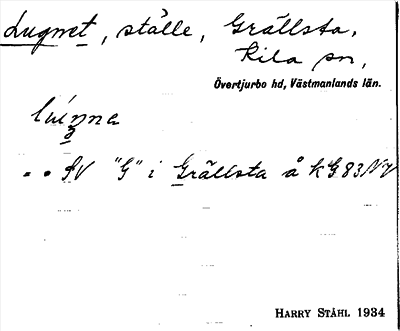 Lugnet, ställe, Grällsta,
Kila sn,
Övertjurbo hd, Västmanlands län.
SV "G" i Grällsta å kG 83 NV
HARRY STÅHL 1934